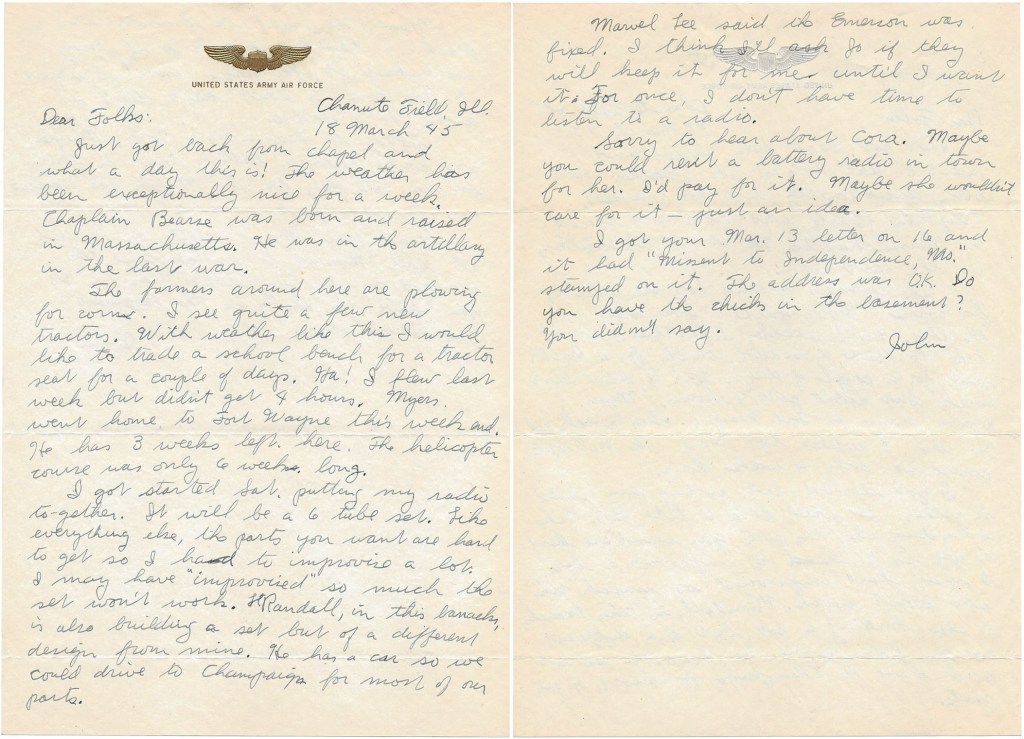 UNITED STATES ARMY AIR FORCE
Chanute Field, Ill.
18 March 45
Dear Folks:
Just got back from chapel and
what a day this is! The weather has
been exceptionally nice for a week.
Chaplain Bearse was born and raised
in Massachusetts. He was in the artillary
in the last war.
The farmers around here are plowing
for corn. I see quite a few new
tractors. With weather like this I would
like to trade a school bench for a tractor
seat for a couple of days. Ha! I flew last
week but didn't get 4 hours. Myers
went home to Fort Wayne this week end.
He has 3 weeks left here. The helicopter
course was only 6 weeks long.
I got started Sat. putting my radio
to-gether. It will be a 6 tube set. Like
everything else, the parts you want are hard
to get so I had to improvise a lot.
I may have "improvised" so much the
set won't work. Randall, in this barracks,
is also building a set but of a different
design from mine. He has a car so we
could drive to Champaign for most of our
parts.
Marvel Lee said the Emerson was
fixed. I think I'll ask Jo if they
will keep it for me until I want
it. For once, I don't have time to
listen to a radio.
Sorry to hear about Cora. Maybe
you could rent a battery radio in town
for her. I'd pay for it. Maybe she wouldn't
care for it - just an idea.
I got your Mar. 13 letter on 16 and
it had "Missent to Independence, Mo."
stamped on it. The address was O.K. Do
you have the chicks in the basement?
You didn't say.
John